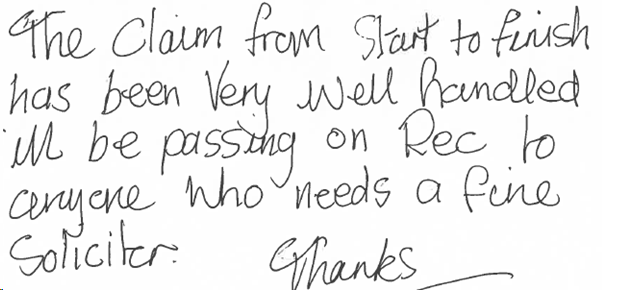 The Claim from Start to finish
has been Very Well handled
ill be passing on Rec to
anyone who needs a fine
Soliciter.
Thanks